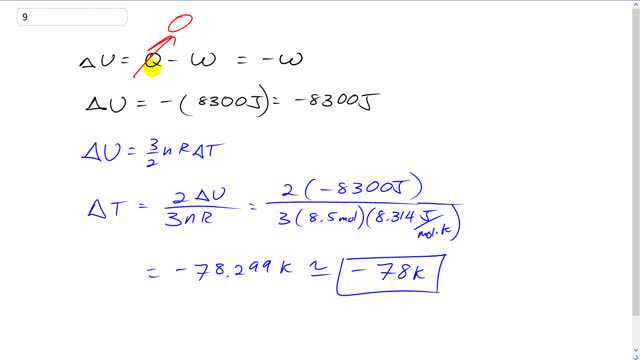 9
ΔU = Q - W = -W
0
ΔU = -(8300J) = -8300J
ΔU = 3/2 nRΔT
ΔT = 2ΔU / 3nR = 2(-8300J) / 3(8.5mol)(8.314 J/mol·K)
= -78.299K ≃ -78K